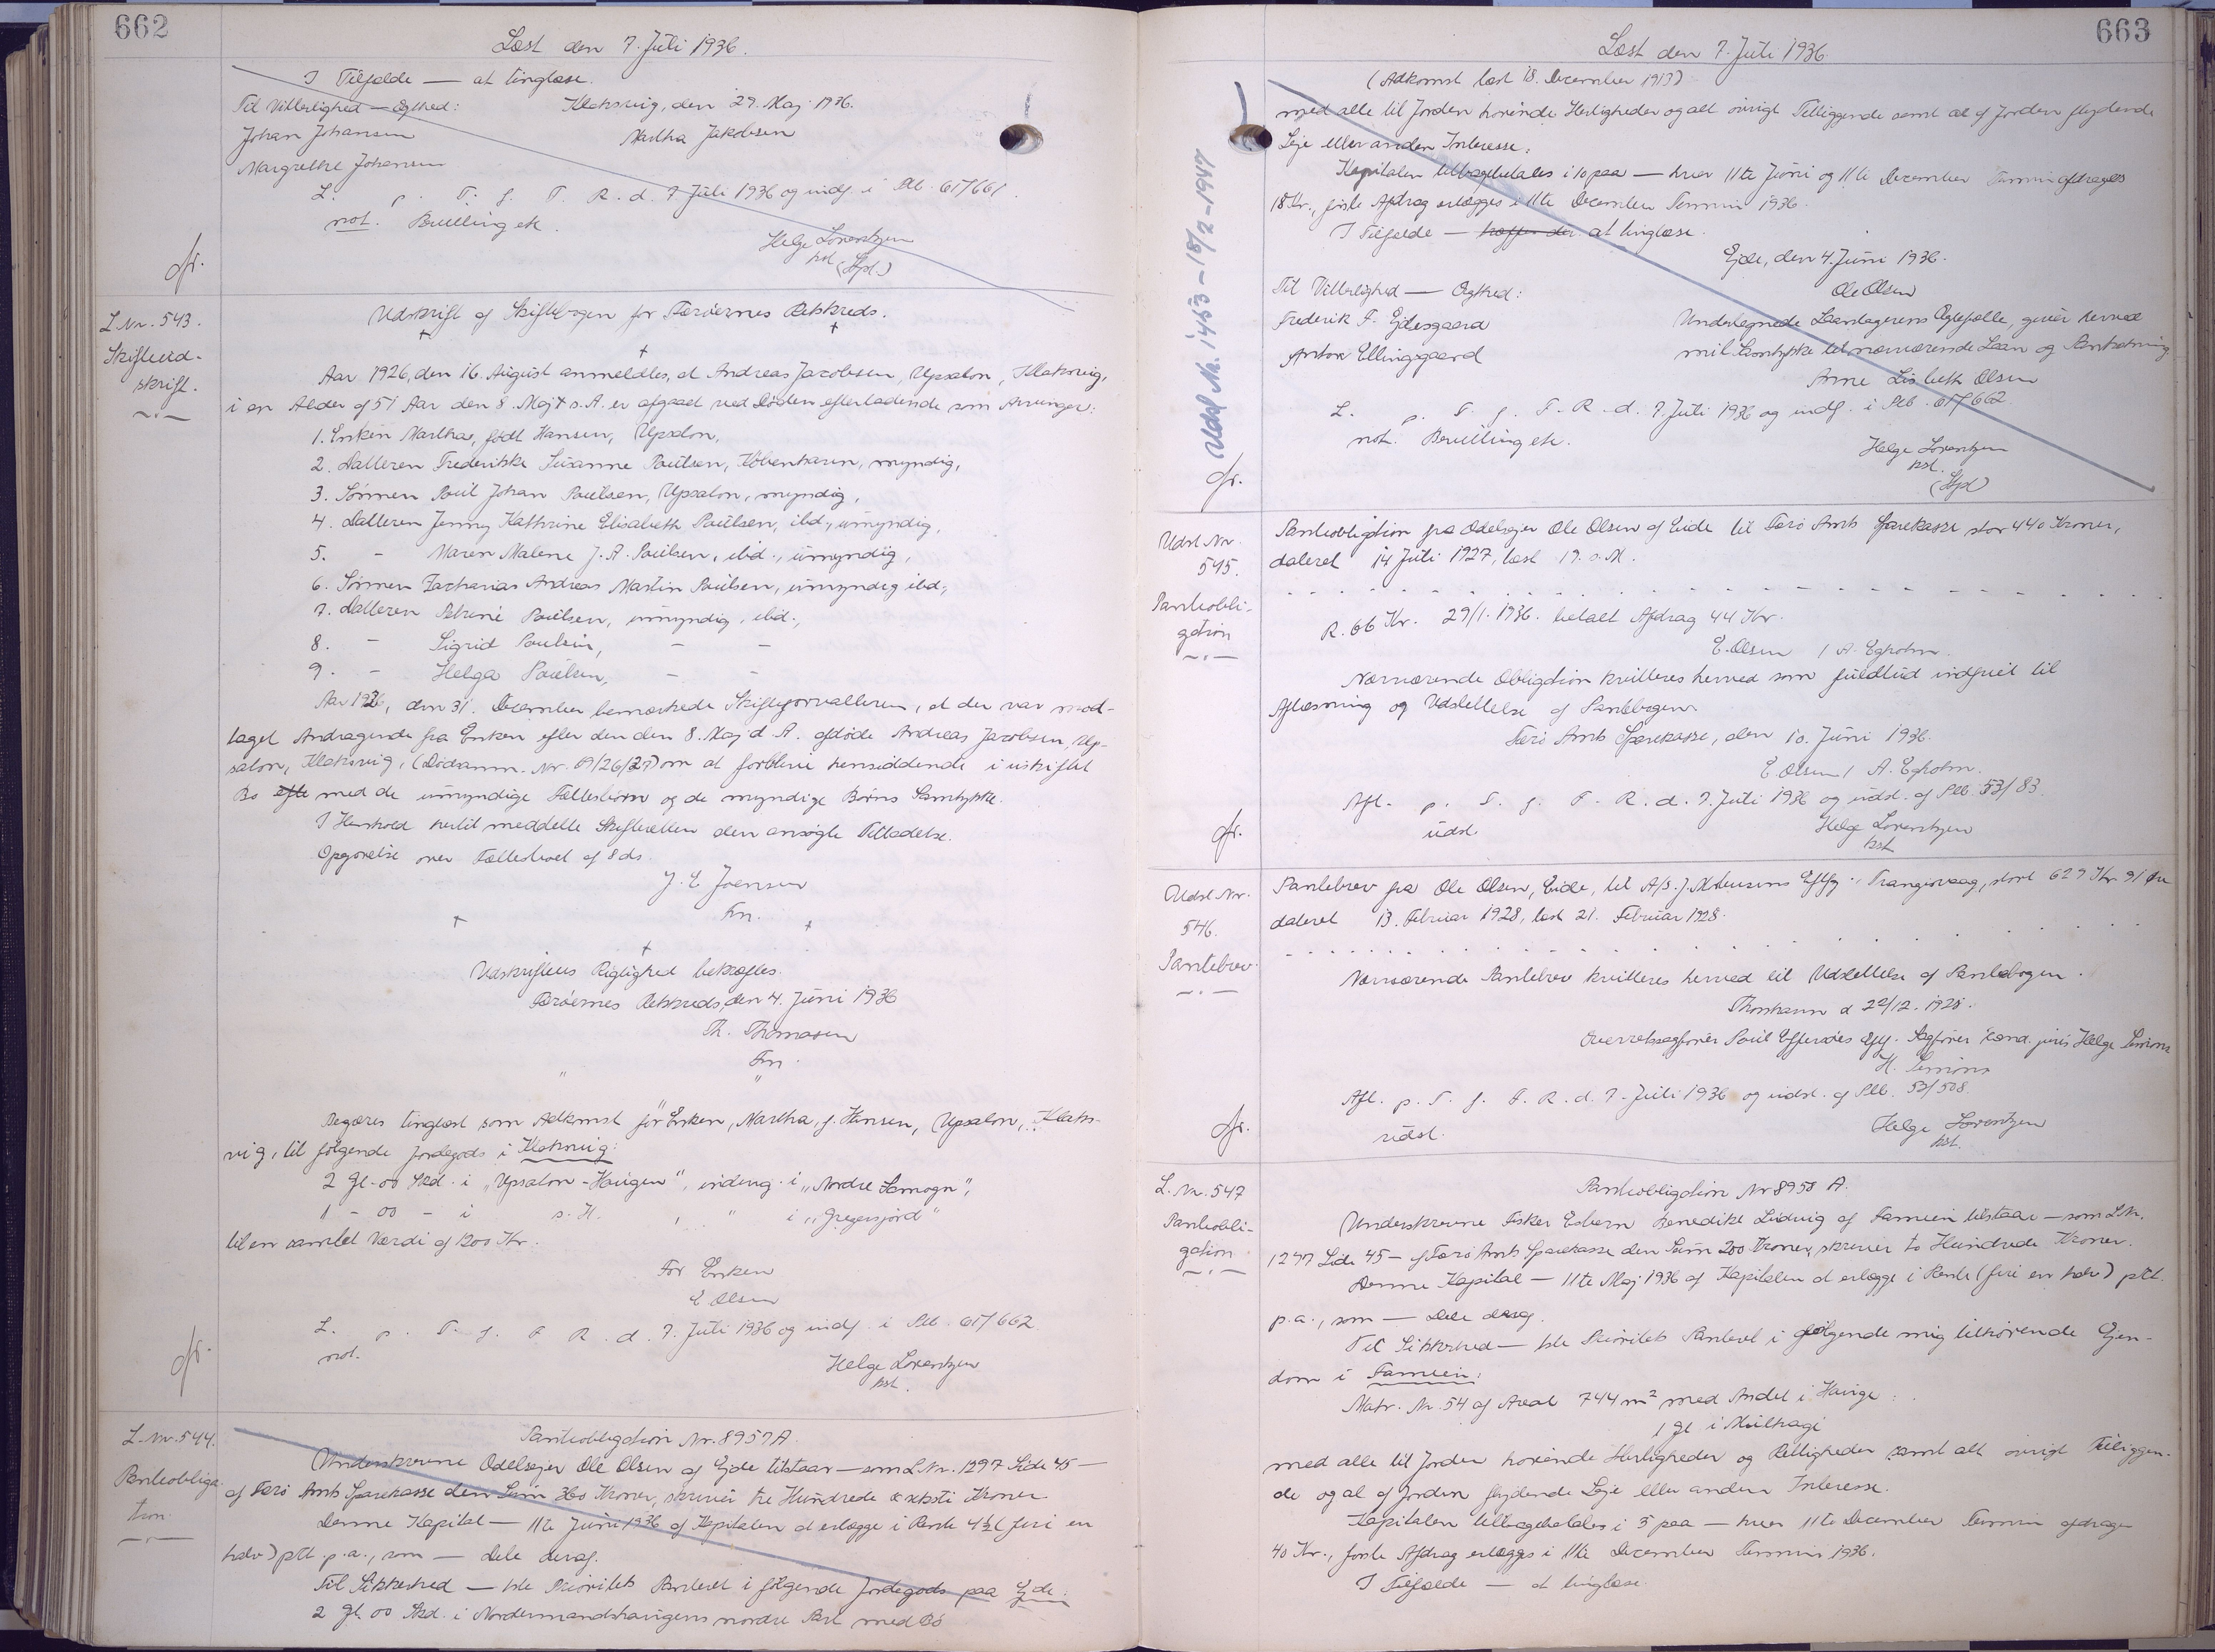 662
Læst den 7. Juli 1936.
I Tilfælde — at tinglæse.
Til Vitterlighed — Ægthed: Klaksvig, den 29. Maj 1936.
Johan Johansen Martha Jakobsen
Margrethe Johansen
L. p. T. f. F. R. d. 7. Juli 1936 og indf. i Pb. 61/661.
not. Bevilling etc.
Helge Lorentzen
kst.
(Stpl.)
fr.
L. Nr. 543.
Skifteud-
skrift.
Udskrift af Skiftebogen for Færøernes Retskreds.
Aar 1926, den 16. August anmeldtes, at Andreas Jacobsen, Upsalon, Klaksvig,
i en Alder af 51 Aar den 8. Maj s. A. er afgaaet ved Døden efterladende som Arvinger:
1. Enken Martha, født Hansen, Upsalon,
2. Datteren Frederikke Susanne Poulsen, København, myndig,
3. Sønnen Poul Johan Poulsen, Upsalon, myndig,
4. Datteren Jenny Kathrine Elisabeth Poulsen, ibd., umyndig,
5. - Maren Malene J. A. Poulsen, ibid., umyndig,
6. Sønnen Zacharias Andreas Martin Poulsen, umyndig ibd.,
7. Datteren Petrine Poulsen, umyndig, ibd.,
8. - Sigrid Poulsen, - -
9. - Helga Poulsen, - -
Aar 1926, den 31. December bemærkede Skifteforvalteren, at der var mod-
taget Andragende fra Enken efter den den 8. Maj d. A. afdøde Andreas Jacobsen, Up-
salon, Klaksvig, (Dødsanm. Nr. 09/26/27) om at forblive hensiddende i uskiftet
Bo efte med de umyndige Fællesbørn og de myndige Børns Samtykke.
I Henhold hertil meddelte Skifteretten den ansøgte Tilladelse.
Opgørelse over Fællesboet af 8 ds.
J. E. Joensen
Fm.
Udskriftens Rigtighed bekræftes.
Færøernes Retskreds, den 4. Juni 1936
Th. Thomasen
Fm.
Begæres tinglæst som Adkomst for Enken, Martha, f. Hansen, Upsalon, Klaks-
vig, til følgende Jordegods i Klaksvig:
2 Gl. 00 Skd. i "Upsalon-Haugen", indeng. i "Nordre Samogn",
1 - 00 - i s. H. , " i "Gregersjord"
til en samlet Værdi af 1200 Kr.
For Enken
E Olsen
L. p. T. f. F. R. d. 7. Juli 1936 og indf. i Pb. 61/662.
not.
Helge Lorentzen
kst.
fr.
L. Nr. 544.
Panteobliga-
tion.
Panteobligation Nr. 8957 A.
Underskrevne Odelsejer Ole Olsen af Ejde tilstaar — som L. Nr. 1297 Side 45 —
af Færø Amts Sparekasse den Sum 360 Kroner, skriver tre Hundrede & seksti Kroner.
Denne Kapital — 11te Juni 1936 af Kapitalen at erlægge i Rente 4½ (fire en
halv) pCt. p. a., som — Dele deraf.
Til Sikkerhed — 1ste Prioritets Panteret i følgende Jordegods paa Ejde:
2 Gl. 00 Skd. i Nordermandshaugens nordre Part med Bø
663
Læst den 7. Juli 1936.
(Adkomst læst 18. December 1913)
med alle til Jorden hørende Herligheder og alt øvrigt Tilliggende samt al af Jorden flydende
Leje eller anden Interesse.
Kapitalen tilbagebetales i 10 paa — hver 11te Juni og 11te December Termin afdrages
18 Kr., første Afdrag erlægges i 11te December Termin 1936.
I Tilfælde — at tinglæse.
Ejde, den 4. Juni 1936.
Til Vitterlighed — Ægthed: Ole Olsen
Frederik F. Ejdesgaard Undertegnede Laantagerens Ægtefælle, giver herved
Anton Ellingsgaard mit Samtykke til nærværende Laan og Pantsætning
Anne Lisbeth Olsen
L. p. T. f. F. R. d. 7. Juli 1936 og indf. i Pb. 61/662
not. Bevilling etc.
Helge Lorentzen
kst.
(Stpl)
Udsl. Nr. 1453 – 18/2 – 1947
fr.
Udsl. Nr.
545.
Panteobli-
gation
Panteobligation fra Odelsejer Ole Olsen af Eide til Færø Amts Sparekasse stor 440 Kroner,
dateret 14 Juli 1927, læst 19. s. M.
R. 66 Kr. 29/1. 1936. betalt Afdrag 44 Kr.
E. Olsen / A. Egholm.
Nærværende Obligation kvitteres herved som fuldtud indfriet til
Aflæsning og Udslettelse af Pantebogen
Færø Amts Sparekasse, den 10. Juni 1936.
E. Olsen / A. Egholm.
Afl. p. T. f. F. R. d. 7. Juli 1936 og udsl. af Pb. 53/83.
udsl.
Helge Lorentzen
kst
fr.
Udsl. Nr.
546.
Pantebrev
Pantebrev fra Ole Olsen, Eide, til A/S. J. Mortensens Eftfg., Trangisvaag, stort 629 Kr. 91 Øre
dateret 13. Februar 1928, læst 21. Februar 1928.
Nærværende Pantebrev kvitteres herved til Udslettelse af Pantebogen.
Thorshavn d 22/12. 1928.
Overretssagfører Poul Effersøes Eftf. Sagfører cand. juris Helge Simons
H. Simons
Afl. p. T. f. F. R. d. 7. Juli 1936 og udsl. af Pb. 53/508.
udsl.
Helge Lorentzen
kst.
fr.
L. Nr. 547
Panteobli-
gation
Panteobligation Nr 8958 A.
Underskrevne Fisker Esbern Benedikt Ludvig af Famien tilstaar — som L. Nr.
1297 Side 45 — af Færø Amts Sparekasse den Sum 200 Kroner, skriver to Hundrede Kroner.
Denne Kapital — 11te Maj 1936 af Kapitalen at erlægge i Rente (fire en halv) pCt.
p. a., som — Dele deraf.
Til Sikkerhed — 1ste Prioritets Panteret i følgende mig tilhørende Ejen-
dom i Famien:
Matr. Nr. 54 af Areal 744 m² med Andel i Hauge:
1 Gl i Mulhagi
med alle til Jorden hørende Herligheder og Rettigheder samt alt øvrigt Tilliggen-
de og al af Jorden flydende Leje eller anden Interesse.
Kapitalen tilbagebetales i 5 paa — hver 11te December Termin afdrages
40 Kr., første Afdrag erlægges i 11te December Termin 1936.
I Tilfælde — at tinglæse.